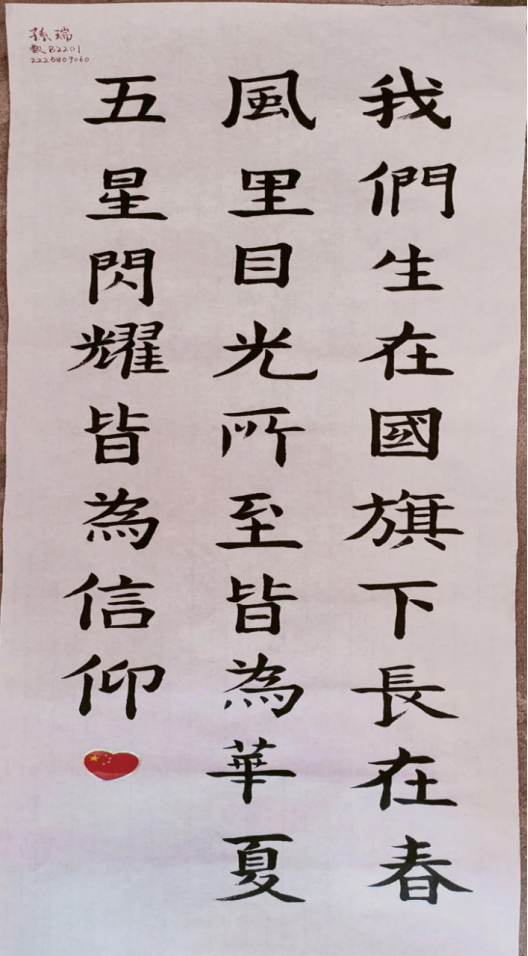 我們生在國旗下長在春
風里目光所至皆為華夏
五星閃耀皆為信仰
孫瑞
數B2201
2225809060